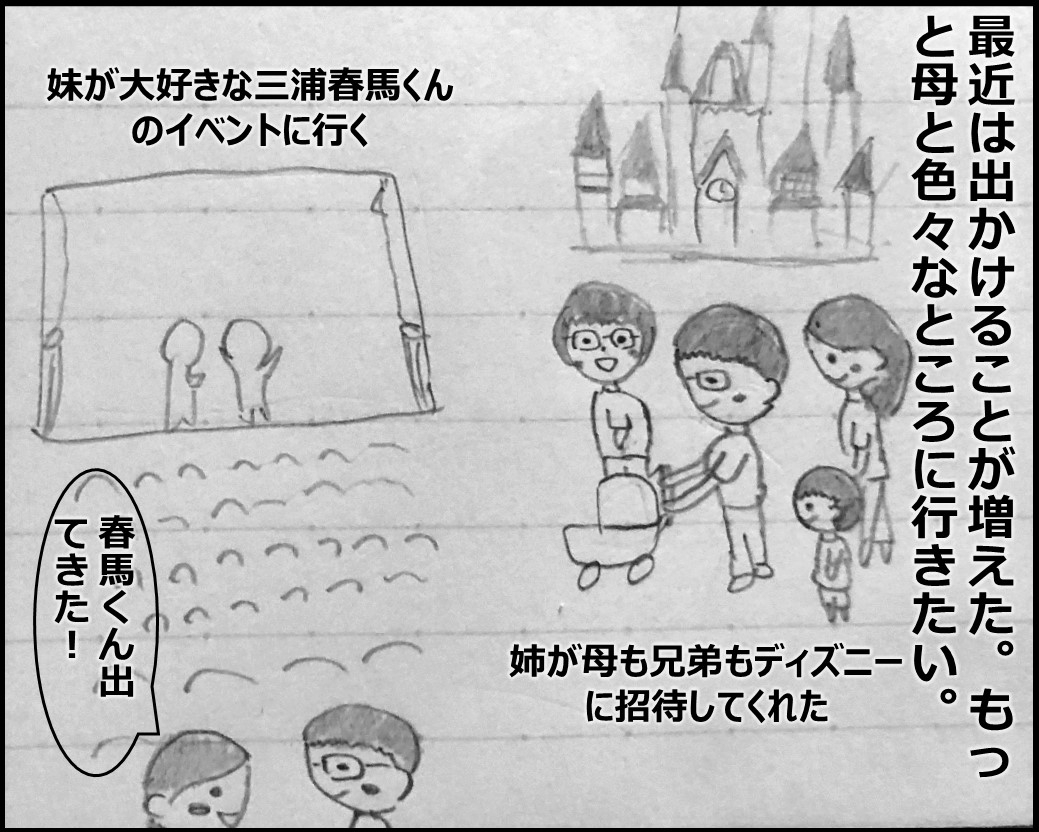 最近は出かけることが増えた。もっ
と母と色々なところに行きたい。
妹が大好きな三浦春馬くん
のイベントに行く
姉が母も兄弟もディズニー
に招待してくれた
春馬くん出
てきた!